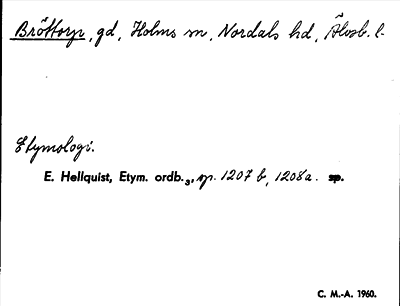 Bröttorp, gd, Holms sn, Nordals hd, Älvsb. l.
Etymologi.
E. Hellquist, Etym. ordb.3, sp. 1207 b, 1208 a. sp.
C. M.-A. 1960.